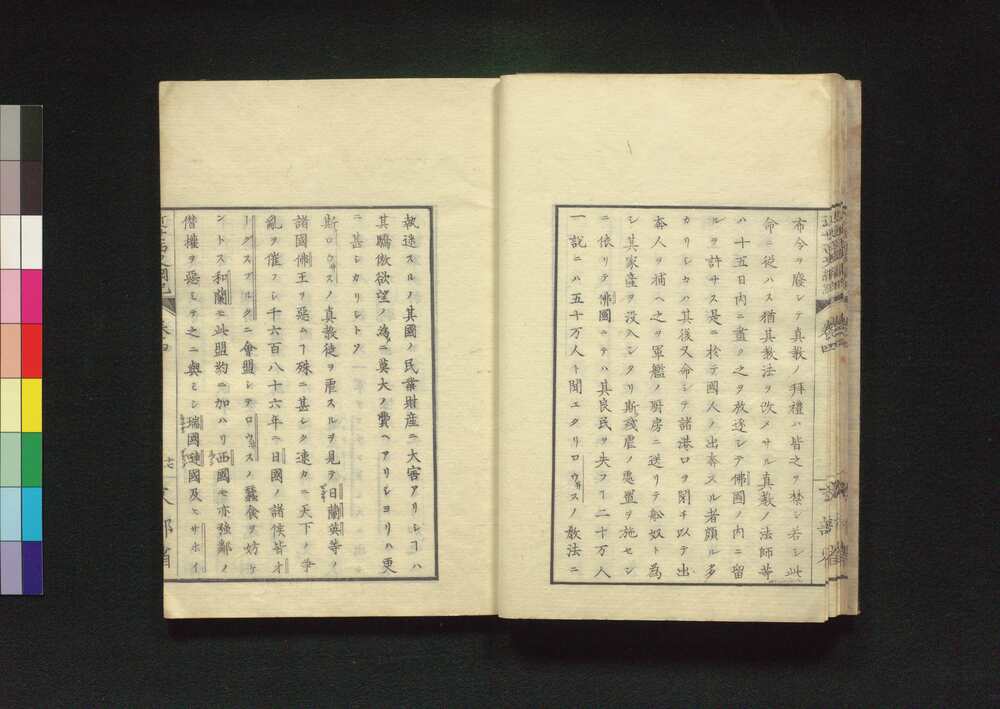 布令ヲ廢シテ真教ノ拜禮ハ皆之ヲ禁シ若シ此
命ニ從ハス猶其教法ヲ改メサル真教ノ法師等
ハ十五日内ニ盡ク之ヲ放逐シテ佛國ノ内ニ留
ルヲ許サス是ニ於テ國人ノ出奔スル者頗ル多
カリシカハ其後又命シテ諸港口ヲ閉チ以テ出
奔人ヲ捕ヘ之ヲ軍艦ノ厨房ニ送リテ舩奴ト為
シ其家産ヲ没入シタリ斯殘虐ノ處置ヲ施セシ
ニ依リテ佛國ニテハ其良民ヲ失フヿ二十万人
一説ニハ五十万人ト聞エタリロウヰスノ教法ニ
巻四
執迷スルノ其國ノ民業財産ニ大害アリシヿハ
其驕傲欲望ノ為ニ莫大ノ費ヘアリシヨリハ更
ニ甚シカリシトソ
斯ロウヰスノ真教徒ヲ虐スルヲ見テ日蘭英等ノ
諸國佛王ヲ惡ムヿ殊ニ甚シク速カニ天下ノ爭
亂ヲ催フシ千六百八十六年ニ日國ノ諸侯皆オ
ーグスブルクニ會盟シテロウヰスノ蠶食ヲ妨ケ
ントス和蘭モ此盟約ニ加ハリ西國モ亦強鄰ノ
僭權ヲ惡ミテ之ニ與ミシ瑞國璉國及ヒサホイ
巻四
十七
文部省